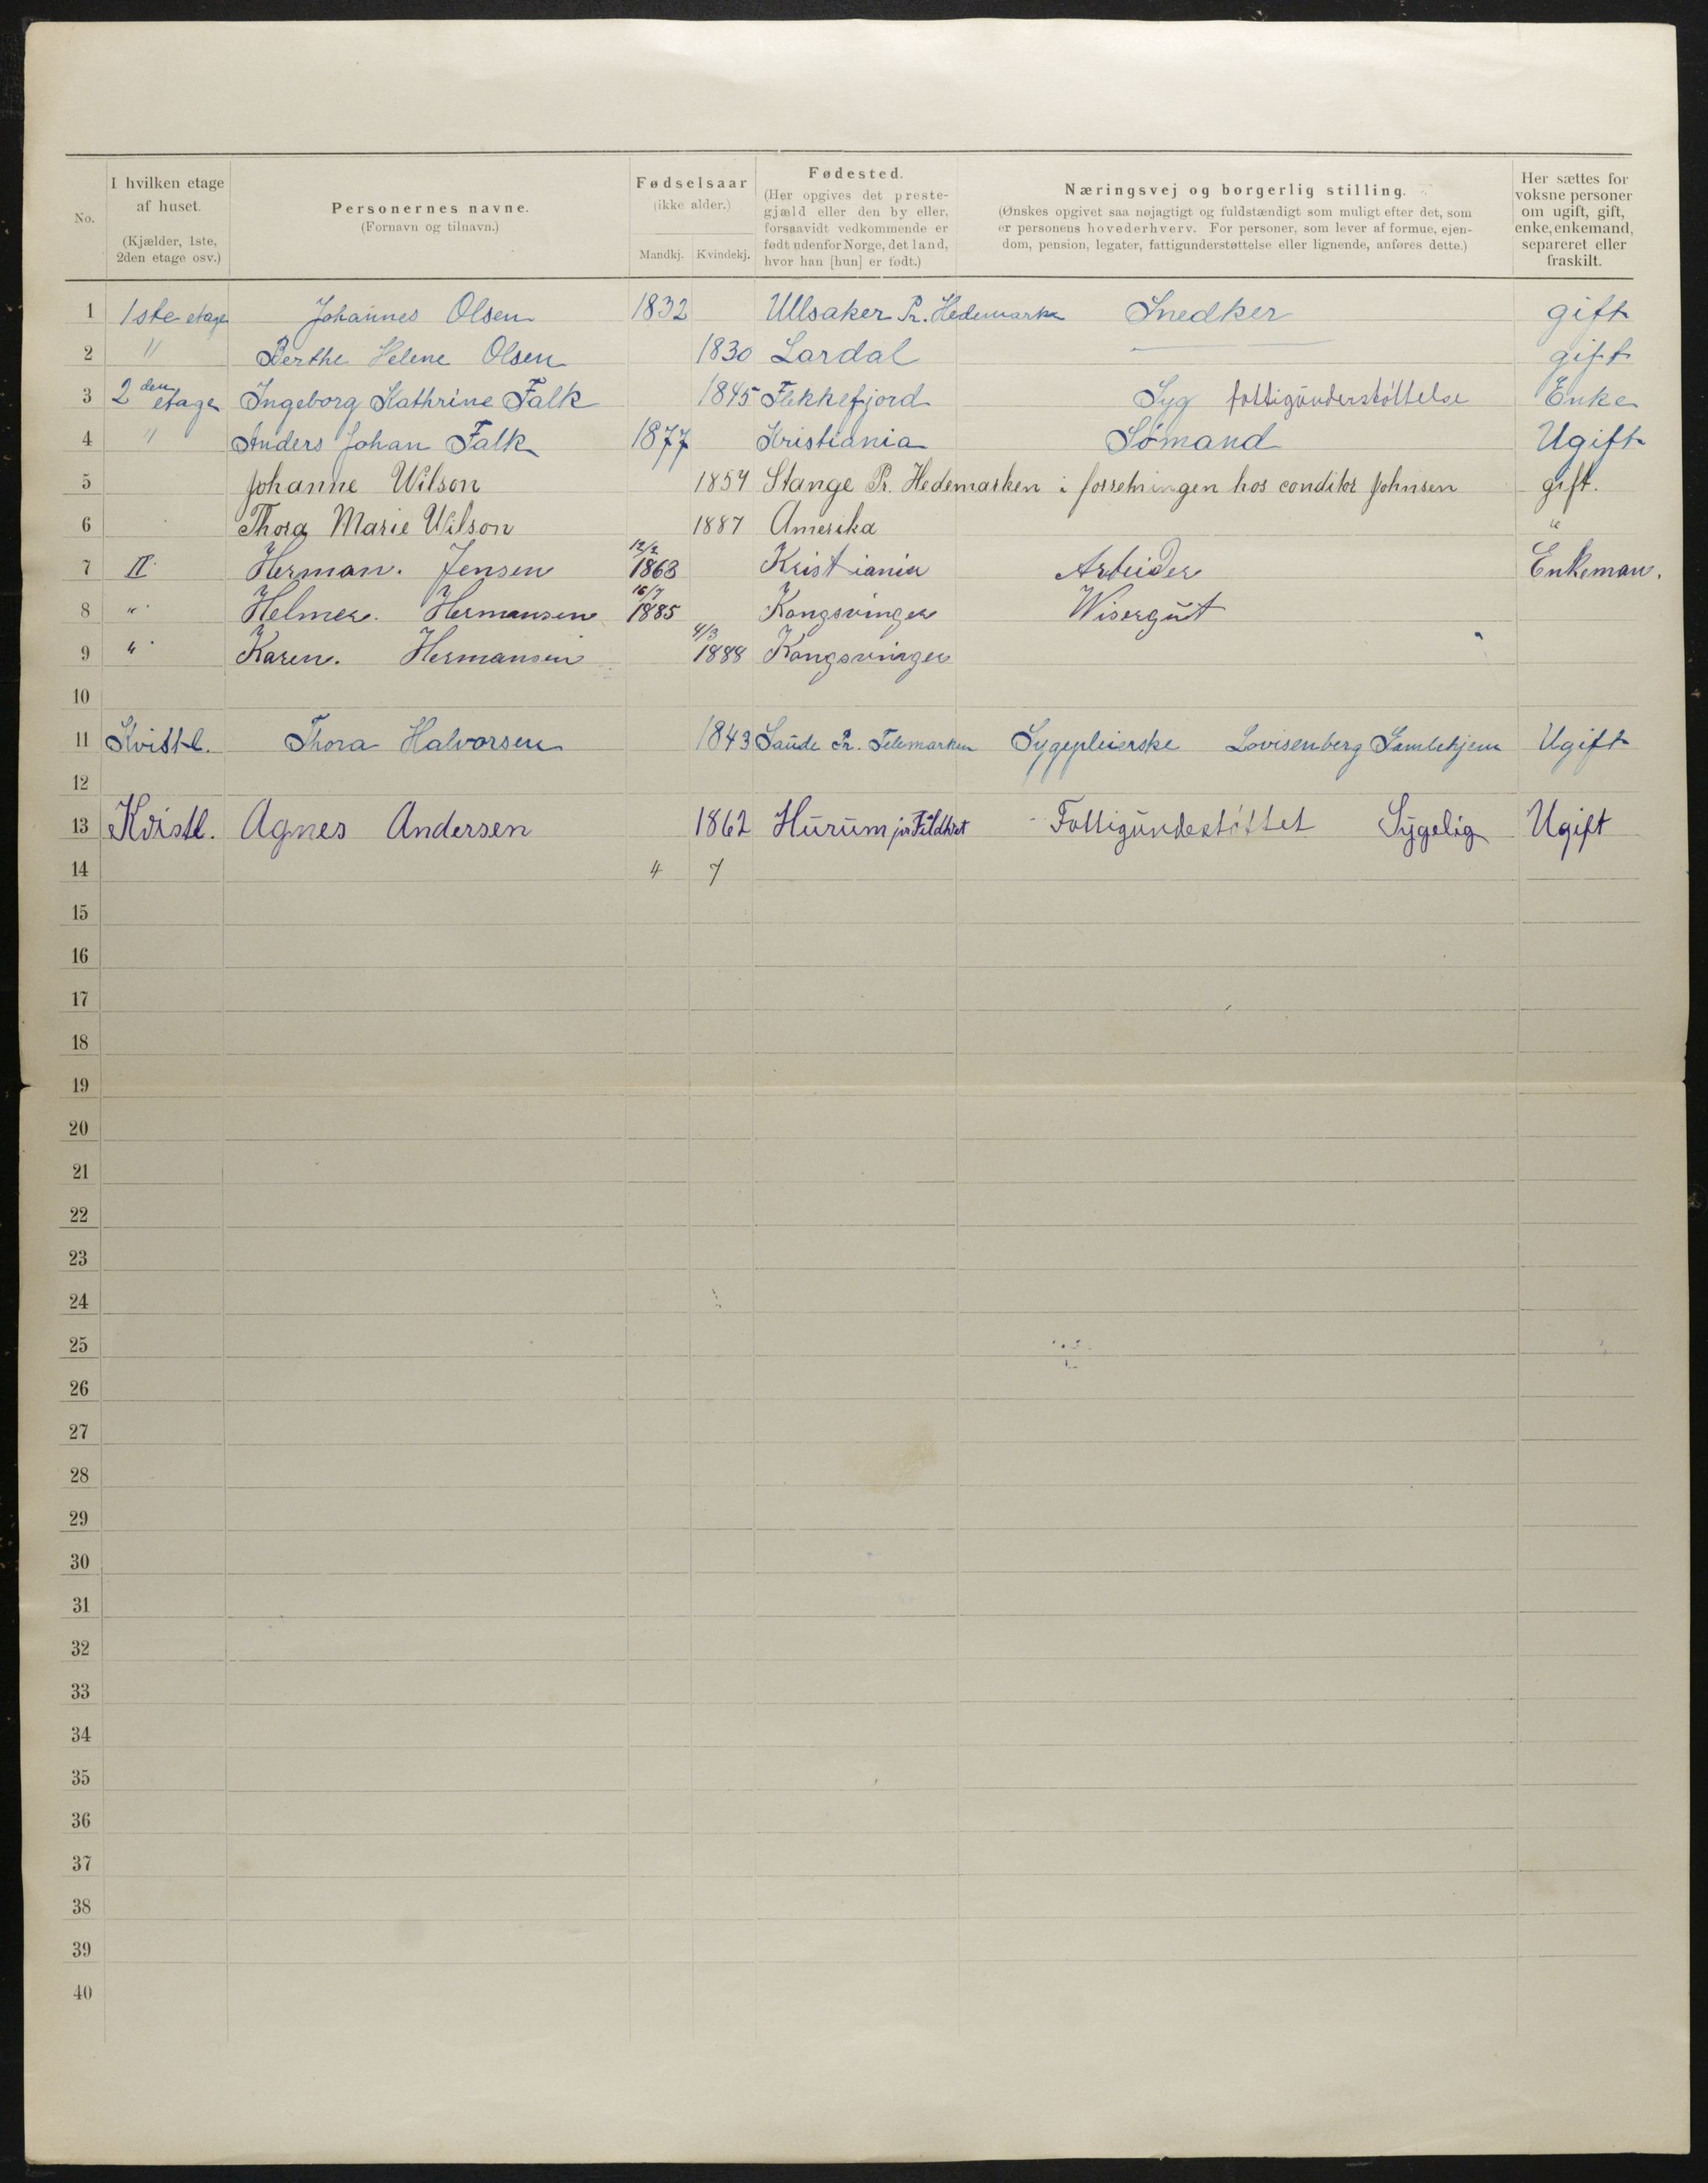 No.
I hvilken etage
af huset.
(Kjælder, 1ste,
2den etage osv.)
Personernes navne.
(Fornavn og tilnavn.)
Fødselsaar
(ikke alder.)
Mandkj. Kvindekj.
Fødested.
(Her opgives det preste-
gjæld eller den by eller,
forsaavidt vedkommende er
født udenfor Norge, det land,
hvor han [hun] er født.)
Næringsvej og borgerlig stilling.
(Ønskes opgivet saa nøjagtigt og fuldstændigt som muligt efter det, som
er personens hovederhverv. For personer, som lever af formue, ejen-
dom, pension, legater, fattigunderstøttelse eller lignende, anføres dette.)
Her sættes for
voksne personer
om ugift, gift,
enke, enkemand,
separeret eller
fraskilt.
1 1ste etage Johannes Olsen 1832 Ullsaker Pr. Hedemarke Snedker gift
2 " Berthe Helene Olsen 1830 Lardal gift
3 2den etage Ingeborg Kathrine Falk 1845 Flekkefjord Syg fattigünderstøttelse Enke
4 " Anders Johan Falk 1877 Kristiania Sømand Ugift
5 Johanne Wilson 1854 Stange Pr. Hedemarken i forretningen hos conditor Johnsen gift.
6 Thora Marie Wilson 1887 Amerika "
7 II. Herman. Jensen 12/2 1863 Kristiania Arbeider Enkeman.
8 ". Helmer. Hermansen 16/7 1885 Kongsvinger Wisergüt
9 ". Karen. Hermansen 4/3 1888 Kongsvinger
10
11 Kvistl. Thora Halvorsen 1843 Saude Pr. Telemarken Sygepleierske Lovisenberg Samlehjem Ugift
12
13 Kvistl. Agnes Andersen 1862 Hürüm Fattigündestøttet Sÿgelig Ugift
14 4 7
15
16
17
18
19
20
21
22
23
24
25
26
27
28
29
30
31
32
33
34
35
36
37
38
39
40